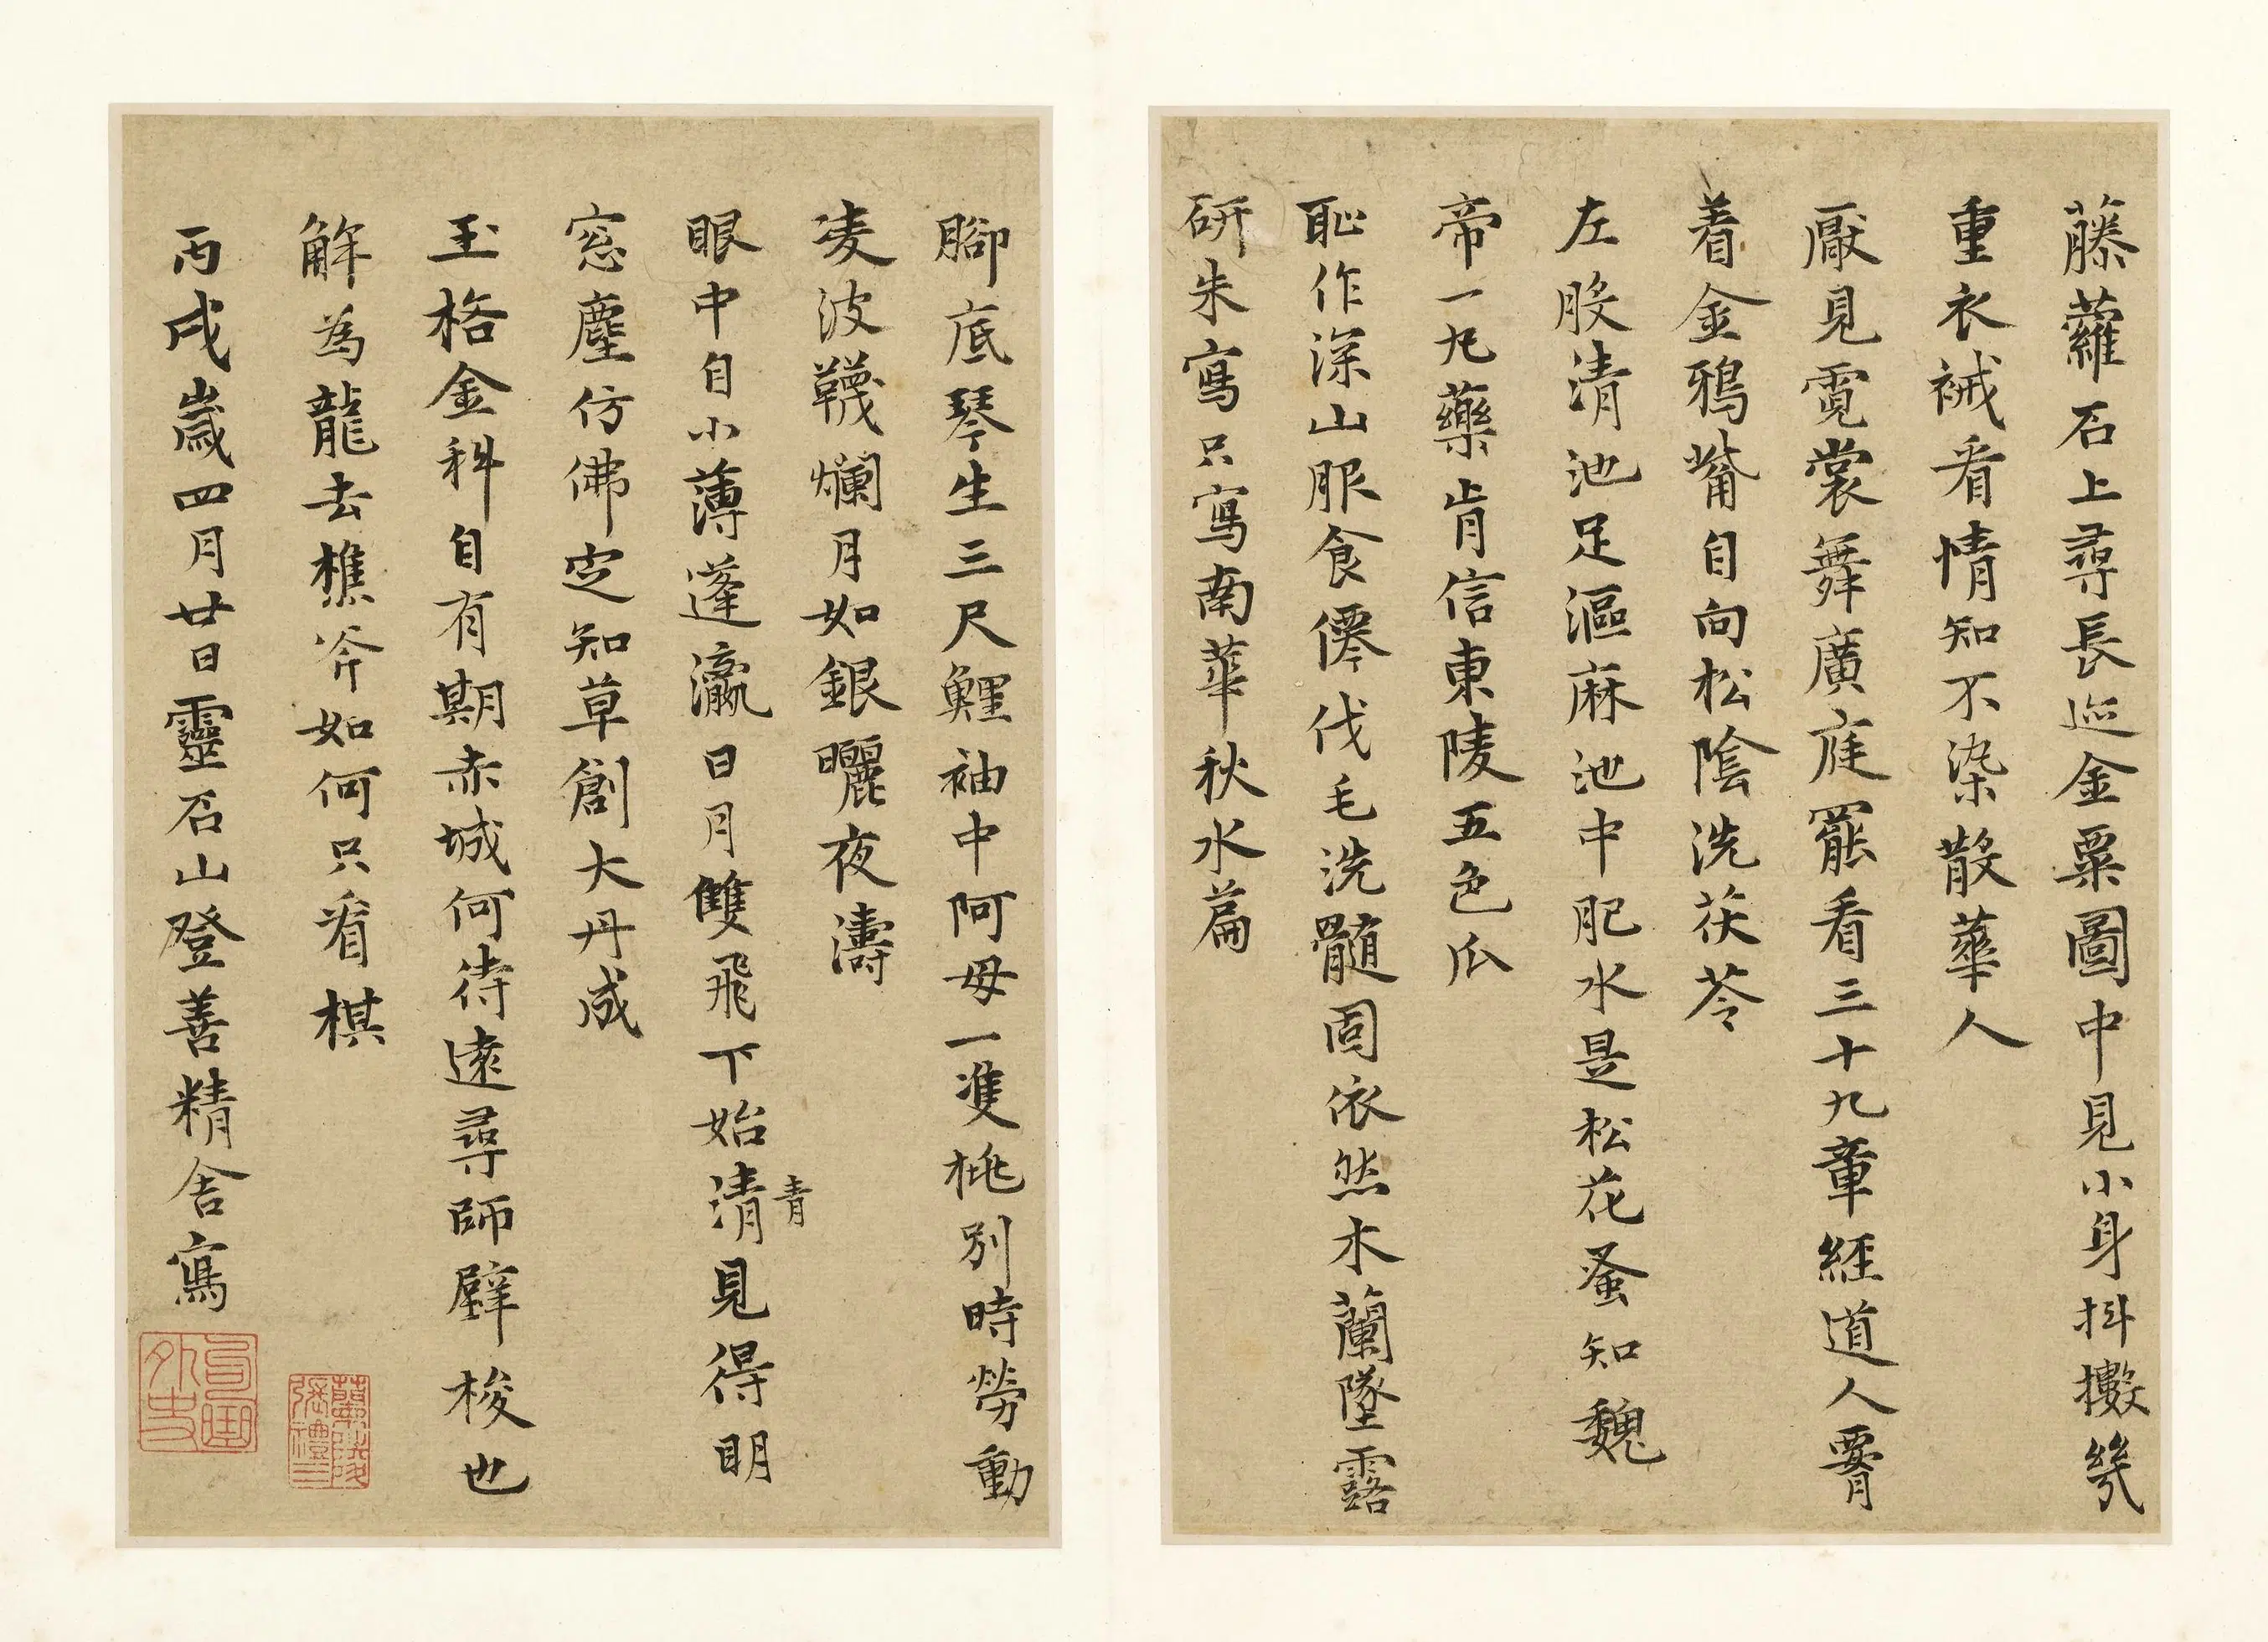 藤蘿石上尋長巡金粟圖中見小身抖擻幾
重衣裓看情知不染散華人
厭見霓裳舞廣庭罷看三十九章經道人霄
着金鴉觜自向松陰洗茯苓
左股清池足漚麻池中肥水是松花蚤知魏
帝一丸藥肯信東陵五色瓜
恥作深山服食僊伐毛洗髓固依然木蘭墜露
研朱寫只寫南華秋水篇
腳底琴生三尺鯉袖中阿母一雙桃別時勞動
凌波韈爛月如銀曬夜濤
眼中自小薄蓬瀛日月雙飛下始清見得明
青
窓塵仿佛定知草創大丹成
玉格金科自有期赤城何待遠尋師壁梭也
解為龍去樵斧如何只看棋
丙戌歲四月廿日靈石山登善精舍寫
句曲外史